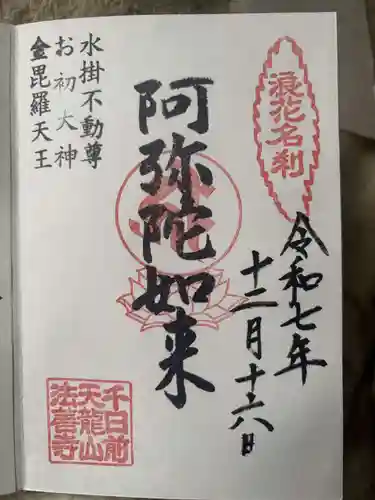 浪花名刹
令和七年
十二月十六日
阿弥陀如来
水掛不動尊
お初大神
金毘羅天王
千日前
天龍山
法善寺